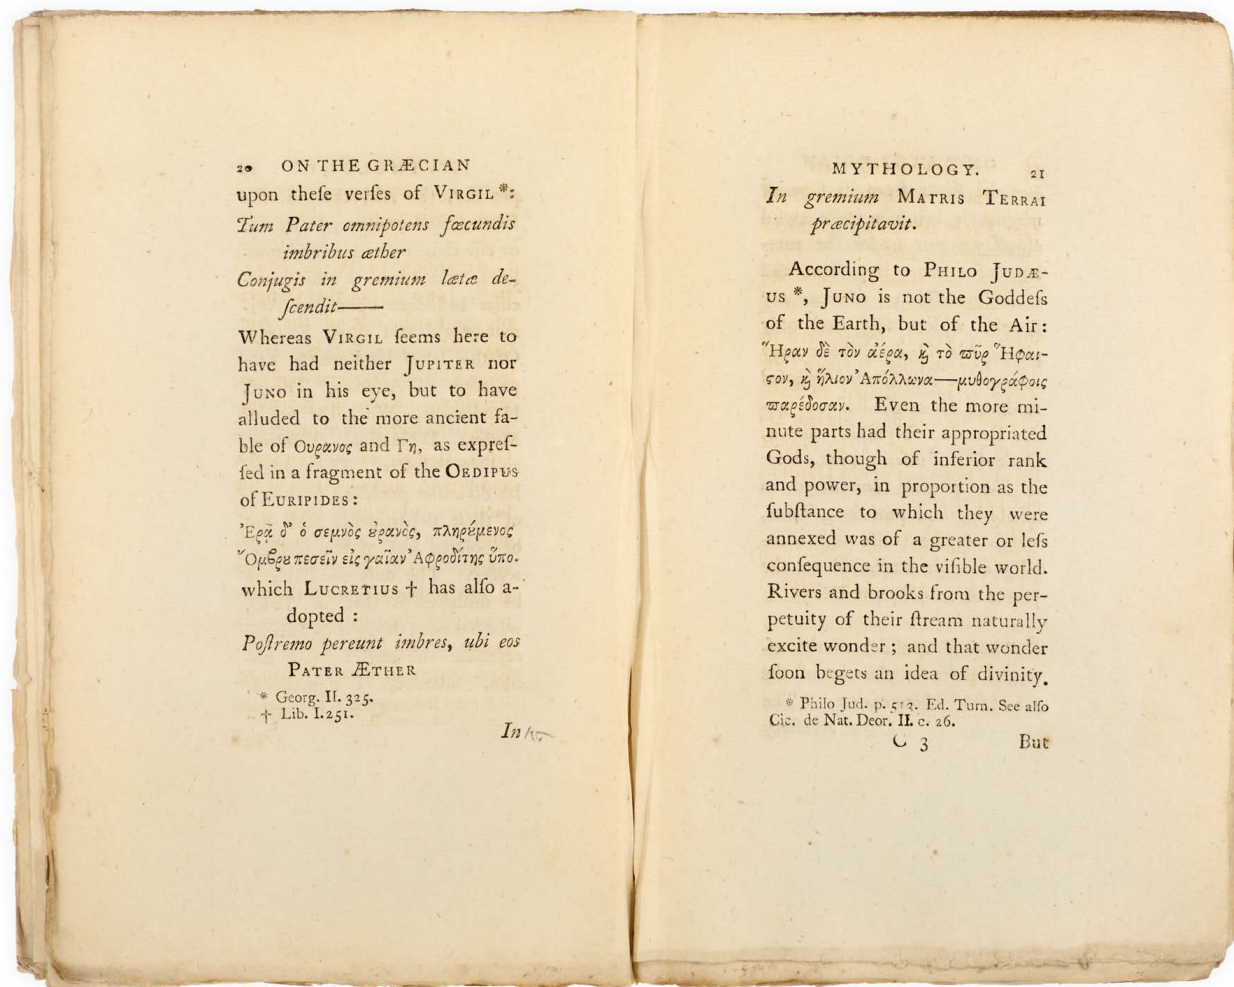 20 ON THE GRÆCIAN
upon theſe verſes of VIRGIL *:
Tum Pater omnipotens fœcundis
imbribus æther
Conjugis in gremium lætæ de-
ſcendit——
Whereas VIRGIL ſeems here to
have had neither JUPITER nor
JUNO in his eye, but to have
alluded to the more ancient fa-
ble of Ουρανος and Γη, as expreſ-
ſed in a fragment of the OEDIPUS
of EURIPIDES:
Ἐρᾷ δ' ὁ σεμνὸς ȣ̓ρανὸς, πληρȣ́μενος
Ὄμβρȣ πεσεῖν εἰς γαῖαν Ἀφροδίτης ὕπο.
which LUCRETIUS † has alſo a-
dopted :
Poſtremo pereunt imbres, ubi eos
PATER ÆTHER
* Georg. II. 325.
† Lib. I. 251.
In
MYTHOLOGY. 21
In gremium MATRIS TERRAI
præcipitavit.
According to PHILO JUDÆ-
US *, JUNO is not the Goddeſs
of the Earth, but of the Air:
Ἥραν δὲ τὸν ἀέρα, ϗ τὸ ϖῦρ Ἥφαι-
ϛον, ϗ ἥλιον Ἀπόλλωνα—μυθογράφοις
ϖαρέδοσαν. Even the more mi-
nute parts had their appropriated
Gods, though of inferior rank
and power, in proportion as the
ſubſtance to which they were
annexed was of a greater or leſs
conſequence in the viſible world.
Rivers and brooks from the per-
petuity of their ſtream naturally
excite wonder ; and that wonder
ſoon begets an idea of divinity.
* Philo Jud. p. 513. Ed. Turn. See alſo
Cic. de Nat. Deor. II. c. 26.
C 3 But